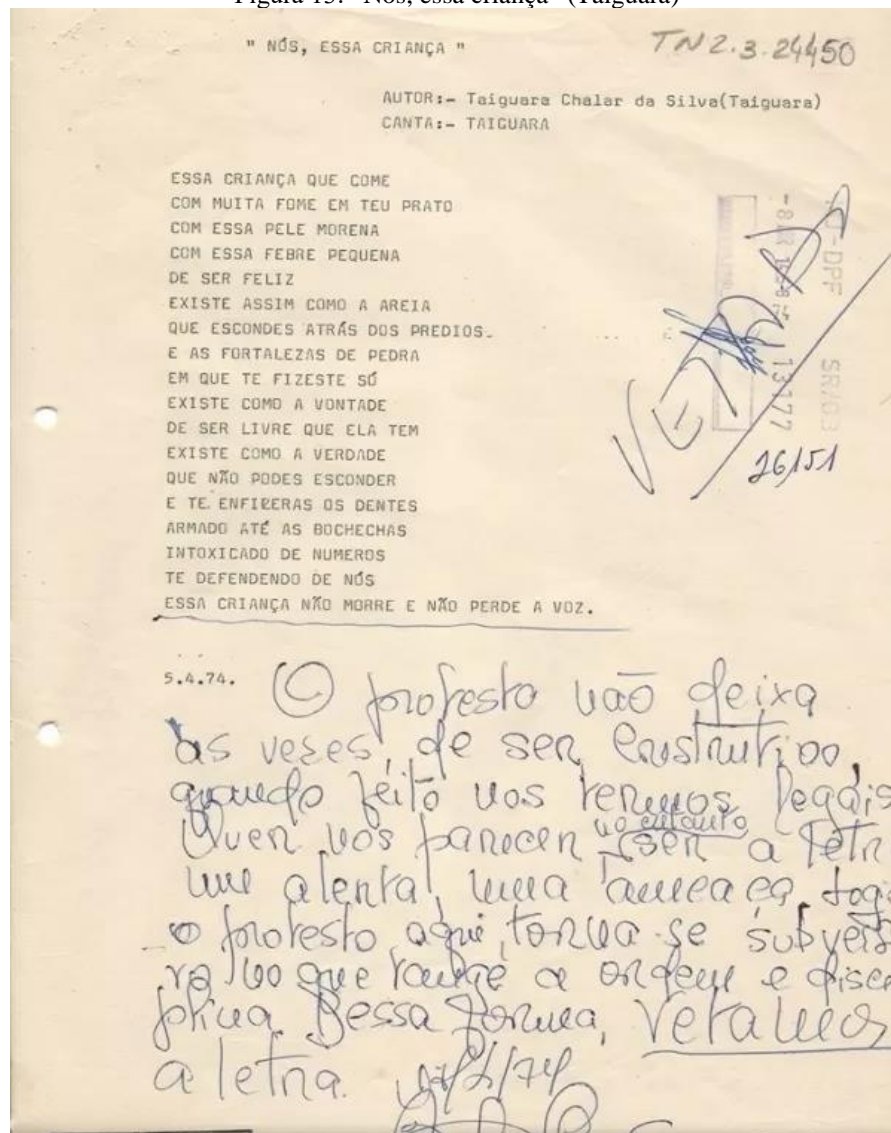 Figura 15: "Nós, essa criança" (Taiguara)
" NÓS, ESSA CRIANÇA "
TN 2.3.24450
AUTOR:- Taiguara Chalar da Silva(Taiguara)
CANTA:- TAIGUARA
ESSA CRIANÇA QUE COME
COM MUITA FOME EM TEU PRATO
COM ESSA PELE MORENA
COM ESSA FEBRE PEQUENA
DE SER FELIZ
EXISTE ASSIM COMO A AREIA
QUE ESCONDES ATRÁS DOS PREDIOS
E AS FORTALEZAS DE PEDRA
EM QUE TE FIZESTE SÓ
EXISTE COMO A VONTADE
DE SER LIVRE QUE ELA TEM
EXISTE COMO A VERDADE
QUE NÃO PODES ESCONDER
E TE ENFIEERAS OS DENTES
ARMADO ATÉ AS BOCHECHAS
INTOXICADO DE NUMEROS
TE DEFENDENDO DE NÓS
ESSA CRIANÇA NÃO MORRE E NÃO PERDE A VOZ.
-DPF SR/03
13177
26/51
5.4.74.
O protesto não deixa
as vezes, de ser construtivo,
quando feito nos termos legais
Quer nos parecer no entanto ser a letr
uma alenta, uma ameaça, logo
o protesto aqui, torna-se subvers
no que tange a ordem e disci
plina Dessa forma, vetamos
a letra. /74